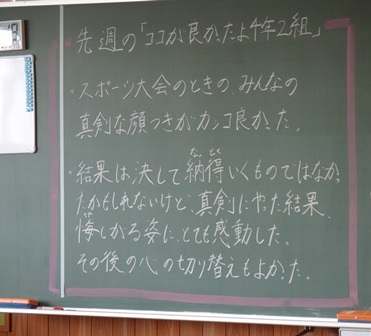 先週の「ココが良かったよ4年2組」
・スポーツ大会のときの、みんなの
真剣な顔つきがカッコ良かった。
・結果は決して納得いくものではなかっ
なっとく
たかもしれないけど、真剣にやった結果、
悔しがる姿に、とても感動した。
くや
その後の心の切り替えもよかった。